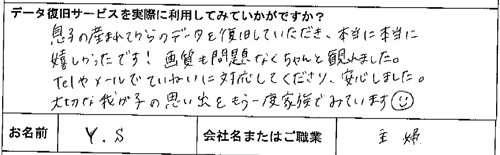 データ復旧サービスを実際に利用してみていかがですか?
息子の産まれてからのデータを復旧していただき、本当に本当に
嬉しかったです! 画質も問題なくちゃんと観れました。
telやメールでていねいに対応してくださり、安心しました。
大切な我が子の思い出をもう一度家族でみています☺
お名前 Y.S 会社名またはご職業 主婦